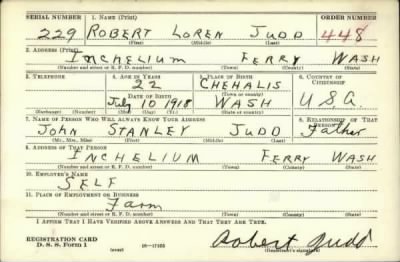 SERIAL NUMBER 1. NAME (Print) ORDER NUMBER
229 ROBERT LOREN JUDD 448
(First) (Middle) (Last)
2. ADDRESS (Print)
INCHELIUM FERRY WASH
(Number and street or R. F. D. number) (Town) (County) (State)
3. TELEPHONE 4. AGE IN YEARS 5. PLACE OF BIRTH 6. COUNTRY OF CITIZENSHIP
22 CHEHALIS
DATE OF BIRTH (Town or county)
July 10 1918 WASH U.S.A.
(Exchange) (Number) (Mo.) (Day) (Yr.) (State or country)
7. NAME OF PERSON WHO WILL ALWAYS KNOW YOUR ADDRESS 8. RELATIONSHIP OF THAT PERSON
JOHN STANLEY JUDD Father
(Mr., Mrs., Miss) (First) (Middle) (Last)
9. ADDRESS OF THAT PERSON
INCHELIUM FERRY WASH
(Number and street or R. F. D. number) (Town) (County) (State)
10. EMPLOYER'S NAME
SELF
11. PLACE OF EMPLOYMENT OR BUSINESS
Farm
(Number and street or R. F. D. number) (Town) (County) (State)
I AFFIRM THAT I HAVE VERIFIED ABOVE ANSWERS AND THAT THEY ARE TRUE.
REGISTRATION CARD
D. S. S. Form 1 (over) Robert Judd